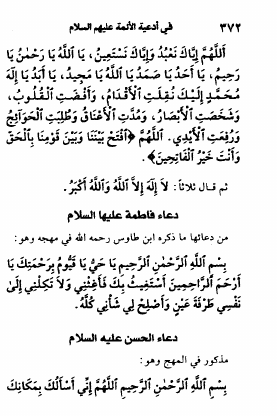 ٣٧٢ في أدعية الأئمة عليهم السلام
اَللَّهُمَّ إِيَّاكَ نَعْبُدُ وَإِيَّاكَ نَسْتَعِينُ، يَا اَللَّهُ يَا رَحْمٰنُ يَا
رَحِيمُ، يَا أَحَدُ يَا صَمَدُ يَا اَللَّهُ يَا مَجِيدُ، يَا أَبَدُ يَا إِلَهَ
مُحَمَّدٍ إِلَيْكَ نُقِلَتِ الْأَقْدَامُ، وَأَفْضَتِ الْقُلُوبُ،
وَشَخَصَتِ الْأَبْصَارُ، وَمُدَّتِ الْأَعْنَاقُ وَطُلِبَتِ الْحَوَائِجُ
وَرُفِعَتِ الْأَيْدِي. اَللَّهُمَّ ﴿افْتَحْ بَيْنَنَا وَبَيْنَ قَوْمِنَا بِالْحَقِّ
وَأَنْتَ خَيْرُ الْفَاتِحِينَ﴾.
ثم قال ثلاثاً: لاَ إِلَهَ إِلاَّ اَللَّهُ وَاَللَّهُ أَكْبَرُ.
دعاء فاطمة عليها السلام
من دعائها ما ذكره ابن طاوس رحمه الله في مهجه وهو:
بِسْمِ اَللَّهِ الرَّحْمٰنِ الرَّحِيمِ يَا حَيُّ يَا قَيُّومُ بِرَحْمَتِكَ يَا
أَرْحَمَ الرَّاحِمِينَ أَسْتَغِيثُ بِكَ فَأَغِثْنِي وَلاَ تَكِلْنِي إِلَى
نَفْسِي طَرْفَةَ عَيْنٍ وَأَصْلِحْ لِي شَأْنِي كُلَّهُ.
دعاء الحسن عليه السلام
مذكور في المهج وهو:
بِسْمِ اَللَّهِ الرَّحْمٰنِ الرَّحِيمِ اَللَّهُمَّ إِنِّي أَسْأَلُكَ بِمَكَانِكَ